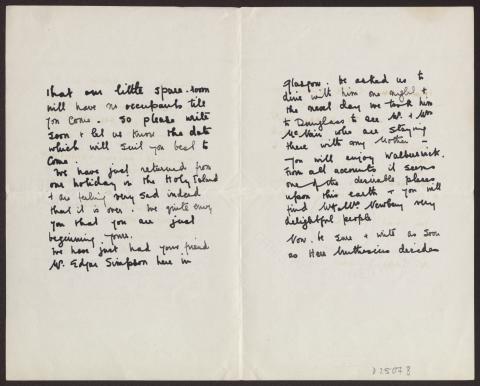 that our little spare-room
will have no occupants till
you come. So please write
soon & let us know the date
which will suit you best to
come.
We have just returned from
our holiday in the Holy Island
& are feeling very sad indeed
that it is over. We quite envy
you that you are just
beginning yours.
We have just had your friend
Mr. Edgar Simpson here in
Glasgow. He asked us to
dine with him one night &
the next day we took him
to Dunglass to see Mr. & Mrs
McNair who are staying
there with my Mother –
You will enjoy Walberswick.
From all accounts it seems
one of the desirable places
upon this earth & you will
find Mr & Mrs. Newbery very
delightful people
Now, be sure & write as soon
as Herr Muthesius decides